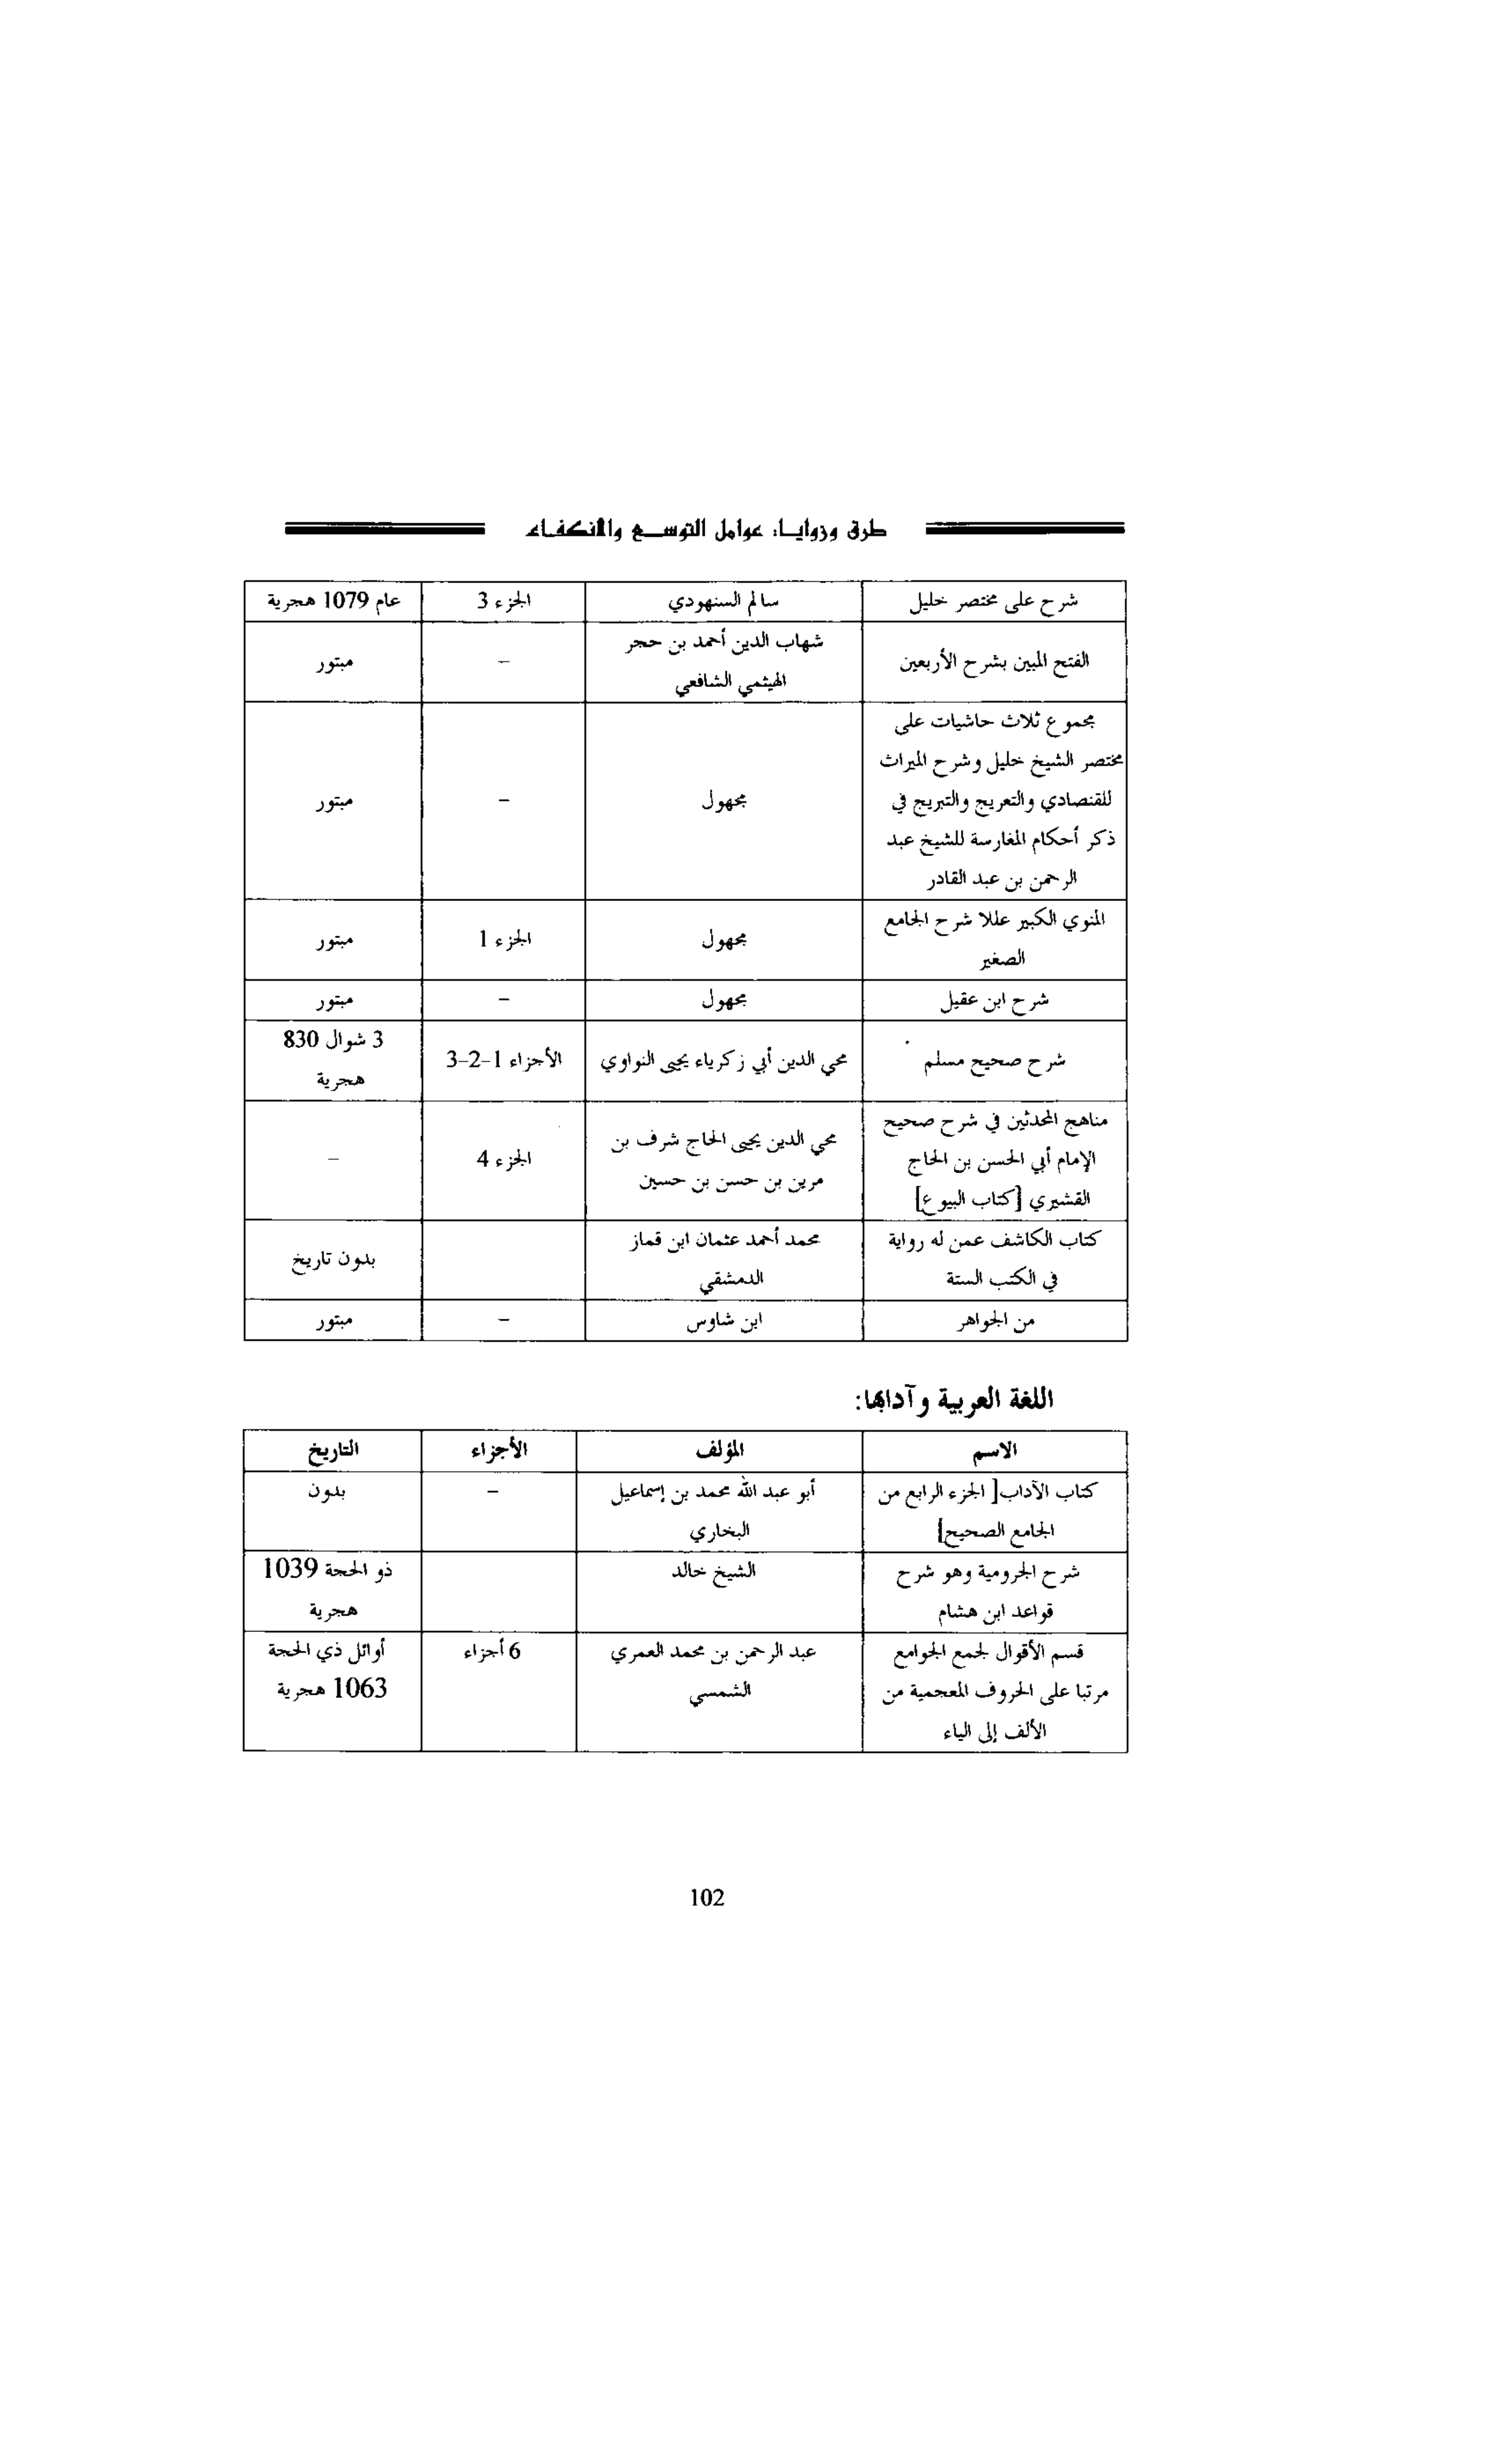 طرق وزوايا: عوامل التوسع والانكفاء
شرح على مختصر خليل
سالم السنهودي
الجزء 3
عام 1079 هجرية
الفتح المبين بشرح الأربعين
شهاب الدين أحمد بن حجر
الهيثمي الشافعي
–
مبتور
مجموع ثلاث حاشيات على
مختصر الشيخ خليل وشرح الميراث
للقنصادي والتعريج والتبريج في
ذكر أحكام المغارسة للشيخ عبد
الرحمن بن عبد القادر
مجهول
–
مبتور
المنوي الكبير عللا شرح الجامع
الصغير
مجهول
الجزء 1
مبتور
شرح ابن عقيل
مجهول
–
مبتور
شرح صحيح مسلم
محي الدين أبي زكرياء يحيى النواوي
الأجزاء 1-2-3
3 شوال 830
هجرية
مناهج المحدثين في شرح صحيح
الإمام أبي الحسن بن الحاج
القشيري [كتاب البيوع]
محي الدين يحيى الحاج شرف بن
مرين بن حسن بن حسين
الجزء 4
–
كتاب الكاشف عمن له رواية
في الكتب الستة
محمد أحمد عثمان ابن قماز
الدمشقي
بدون تاريخ
من الجواهر
ابن شاوس
–
مبتور
اللغة العربية وآدابها:
الاسم
المؤلف
الأجزاء
التاريخ
كتاب الآداب[ الجزء الرابع من
الجامع الصحيح]
أبو عبد الله محمد بن إسماعيل
البخاري
–
بدون
شرح الجرومية وهو شرح
قواعد ابن هشام
الشيخ خالد
ذو الحجة 1039
هجرية
قسم الأقوال لجمع الجوامع
مرتبا على الحروف المعجمية من
الألف إلى الياء
عبد الرحمن بن محمد العمري
الشمسي
6 أجزاء
أوائل ذي الحجة
1063 هجرية
102